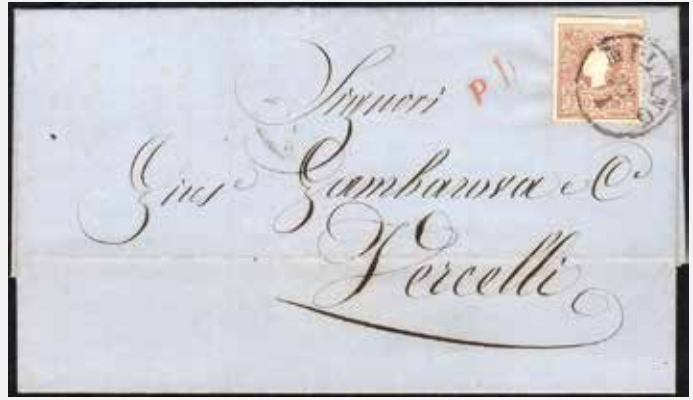 P. D.
MILANO
Signori
Gius.e Gambarova e C.o
Vercelli